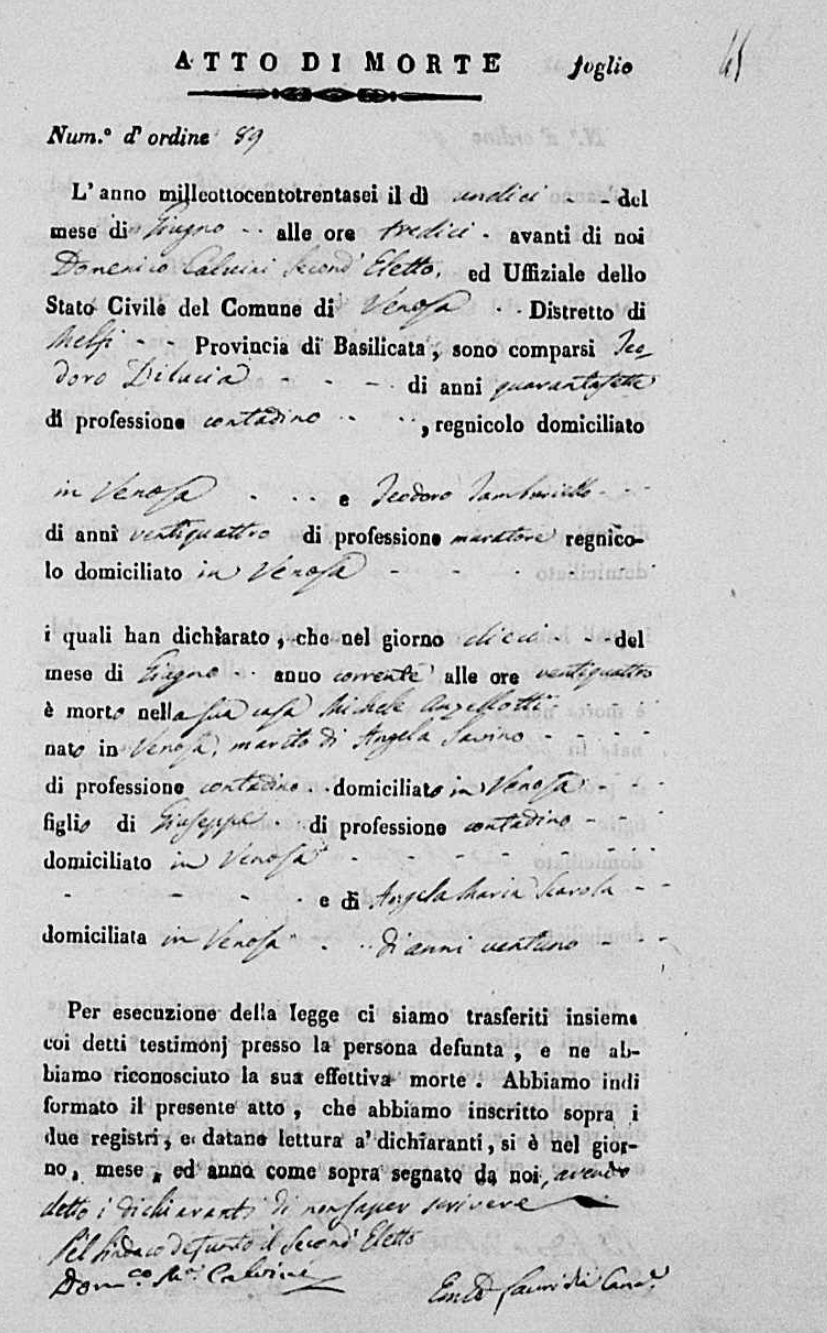 ATTO DI MORTE foglio 45
Num.º d'ordine 89
L'anno milleottocentotrentasei il dì undici - - del
mese di Giugno - - alle ore tredici - avanti di noi
Domenico Calvini Second'Eletto, ed Uffiziale dello
Stato Civile del Comune di Venosa - - Distretto di
Melfi - - Provincia di Basilicata, sono comparsi Teo-
doro Dilucia - - - - di anni quarantasette
di professione contadino - - -, regnicolo domiciliato
in Venosa - - - e Teodoro Tamburiello - - -
di anni ventiquattro di professione muratore regnico-
lo domiciliato in Venosa - - - - -
i quali han dichiarato, che nel giorno dieci - - - del
mese di Giugno - - anno corrente alle ore ventiquattro
è morto nella sua casa Michele Anzellotti - - -
nato in Venosa, marito di Angela Savino - - - - -
di professione contadino - - domiciliato in Venosa - - -
figlio di Giuseppe - - di professione contadino - - -
domiciliato in Venosa - - - - - - -
- - - - - e di Angela Maria Scarola - -
domiciliata in Venosa - - - di anni ventuno - - -
Per esecuzione della legge ci siamo trasferiti insieme
coi detti testimonj presso la persona defunta, e ne ab-
biamo riconosciuto la sua effettiva morte. Abbiamo indi
formato il presente atto, che abbiamo inscritto sopra i
due registri, e datane lettura a' dichiaranti, si è nel gior-
no, mese, ed anno come sopra segnato da noi, avendo
detto i dichiaranti di non saper scrivere
Pel Sindaco defunto il Second'Eletto
Dom.co Calvini